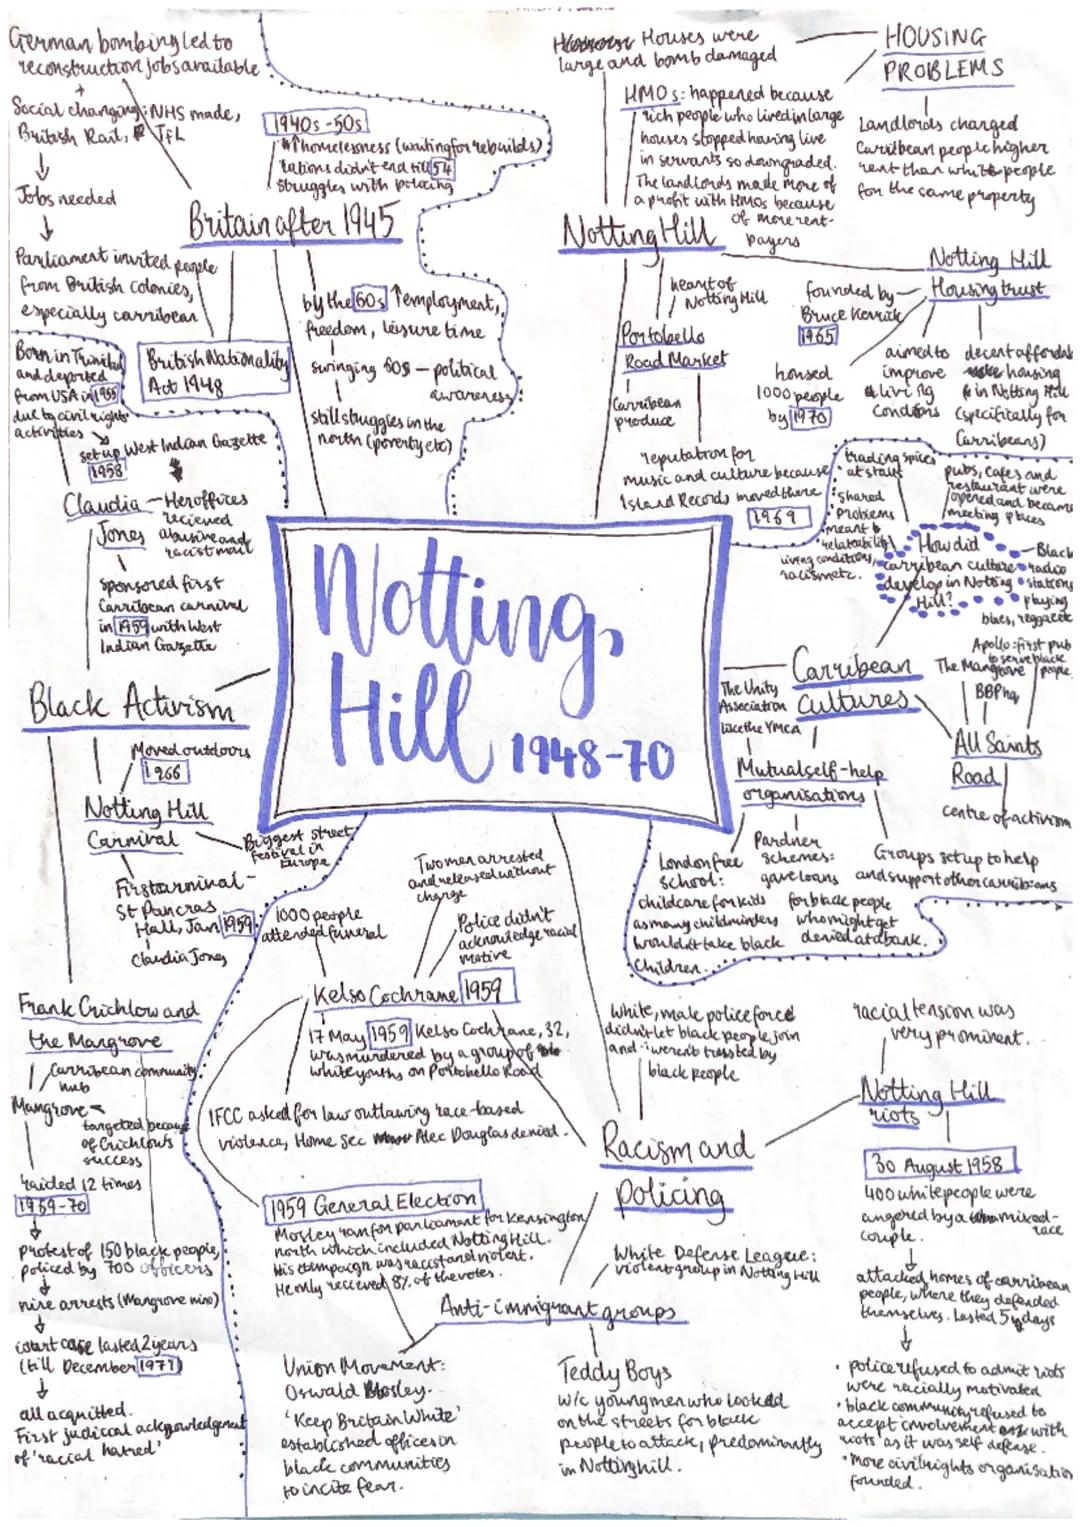 German bombing led to
reconstruction jobs available
Social changing: NHS made,
British Rail, TfL
Jobs needed
Parliament invited people
from British colonies,
especially carribean
1940s-50s
↑homelessness (waiting for rebuilds)
rations didn't end till 54
struggles with policing
Britain after 1945
British Nationality
Act 1948
by the 60s ↑employment,
freedom, leisure time
swinging 60s - political
awareness
still struggles in the
north (poverty etc)
Houses were
large and bomb damaged
HOUSING
PROBLEMS
HMOs: happened because
rich people who lived in large
houses stopped having live
in servants so downgraded.
The landlords made more of
a profit with HMOs because
of more rent-
payers
Landlords charged
Carribean people higher
rent than white people
for the same property
Notting Hill
heart of
Notting Hill
Portobello
Road Market
Carribean
produce
reputation for
music and culture because
Island Records moved there
1969
Notting Hill
Housing trust
founded by
Bruce Kenrick
1965
housed
1000 people
by 1970
aimed to
improve
living
conditions
decent affordable
housing
in Notting Hill
(specifically for
Carribeans)
Born in Trinidad
and deported
from USA in 1955
due to civil rights
activities
set up West Indian Gazette
1958
Claudia
Jones
Her offices
recieved
abusive and
racist mail
sponsored first
Carribean carnival
in 1959 with West
Indian Gazette
Notting
Hill 1948-70
trading spices
at start
shared
problems
meant
relatability
living conditions,
racism etc.
pubs, cafes and
restaurant were
opened and became
meeting places
How did
carribean culture
develop in Notting
Hill?
Black
radio
stations
playing
blues, reggae etc
Carribean
cultures
The Unity
Association
like the YMCA
Apollo: first pub
to serve black
people
The Mangrove
BBP hq
All Saints
Road
centre of activism
Mutual self-help
organisations
London free
school:
childcare for kids
as many childminders
wouldn't take black
children.
Pardner
schemes:
gave loans
for black people
who might get
denied at a bank.
Groups set up to help
and support other carribeans
Black Activism
Moved outdoors
1966
Notting Hill
Carnival
Biggest street
festival in
Europe
First carnival -
St Pancras
Hall, Jan 1959
Claudia Jones
Frank Crichlow and
the Mangrove
Carribean community
hub
Mangrove
targeted because
of Crichlow's
success
raided 12 times
1969-70
protest of 150 black people,
policed by 700 officers
nine arrests (Mangrove nine)
court case lasted 2 years
(till December 1971)
all acquitted.
First judicial acknowledgement
of 'racial hatred'
1000 people
attended funeral
Two men arrested
and released without
charge
Police didn't
acknowledge racial
motive
Kelso Cochrane 1959
17 May 1959 Kelso Cochrane, 32,
was murdered by a group of
white youths on Portobello Road
IFCC asked for law outlawing race-based
violence, Home Sec Alec Douglas denied.
1959 General Election
Mosley ran for parliament for Kensington
north which included Notting Hill.
His campaign was racist and violent.
He only recieved 8% of the votes.
White, male police force
didn't let black people join
and weren't trusted by
black people
Racism and
Policing
racial tension was
very prominent.
Notting Hill
riots
30 August 1958
400 white people were
angered by a mixed-
race
couple.
attacked homes of carribean
people, where they defended
themselves. Lasted 5 days
• police refused to admit riots
were racially motivated
• black community refused to
accept involvement with
'riots' as it was self defense.
• more civil rights organisations
founded.
White Defense League:
violent group in Notting Hill
Anti-immigrant groups
Union Movement:
Oswald Mosley.
'Keep Britain White'
established offices in
black communities
to incite fear.
Teddy Boys
w/c young men who looked
on the streets for black
people to attack, predominantly
in Notting hill.